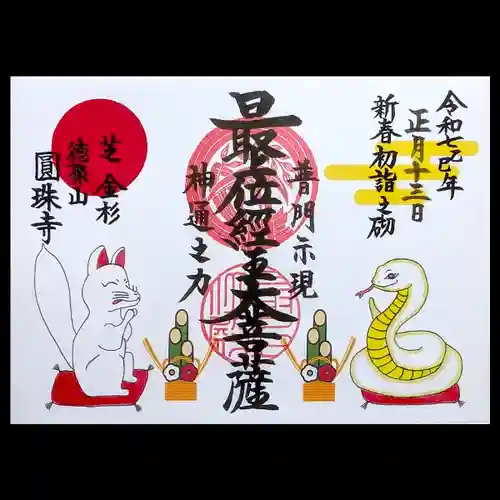 令和七乙巳年
正月十三日
新春初詣之砌
普門示現
最位經王大菩薩
神通之力
芝金杉
徳榮山
圓珠寺